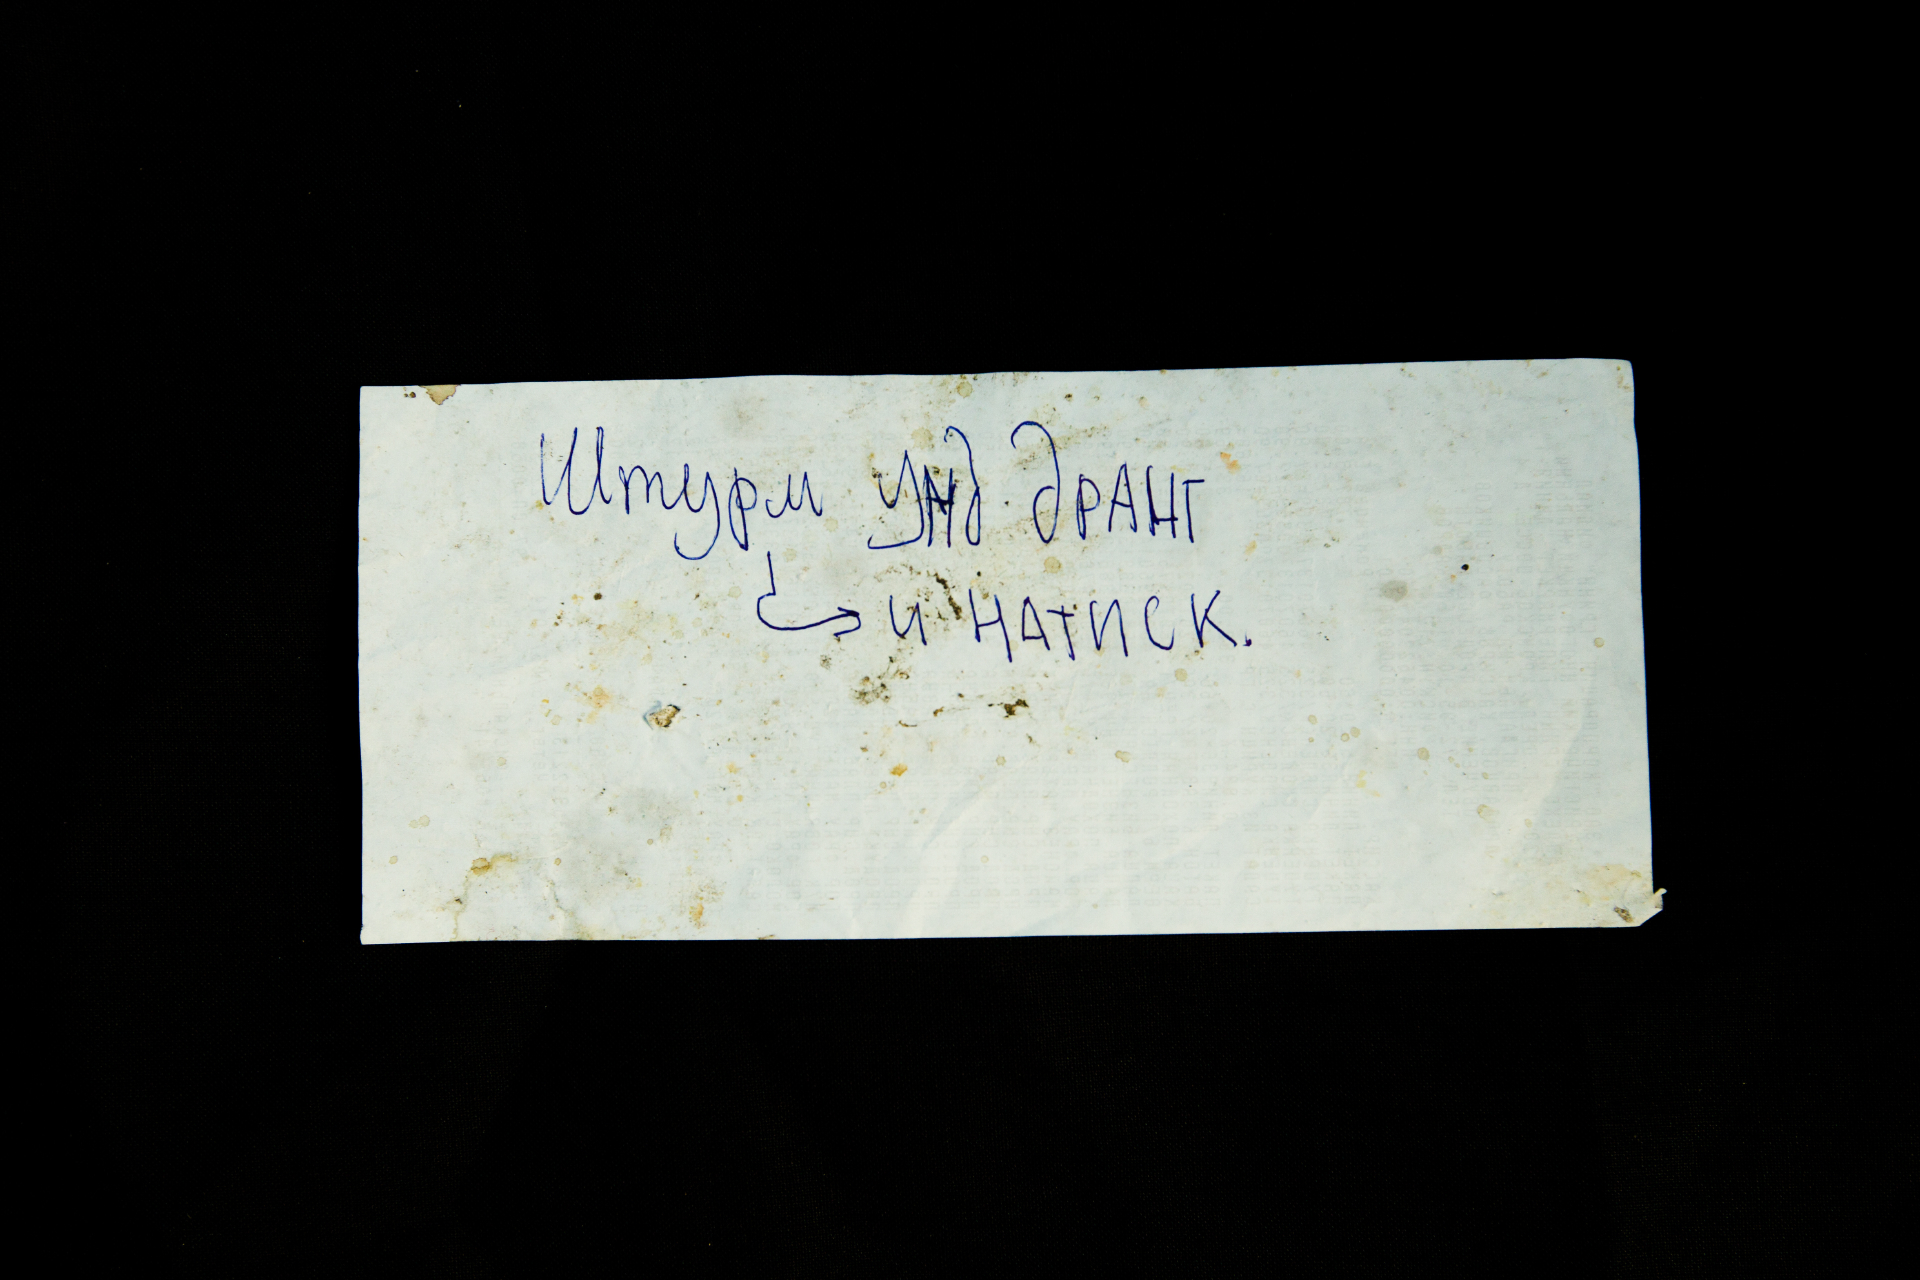 Штурм унд дранг
→ и натиск.